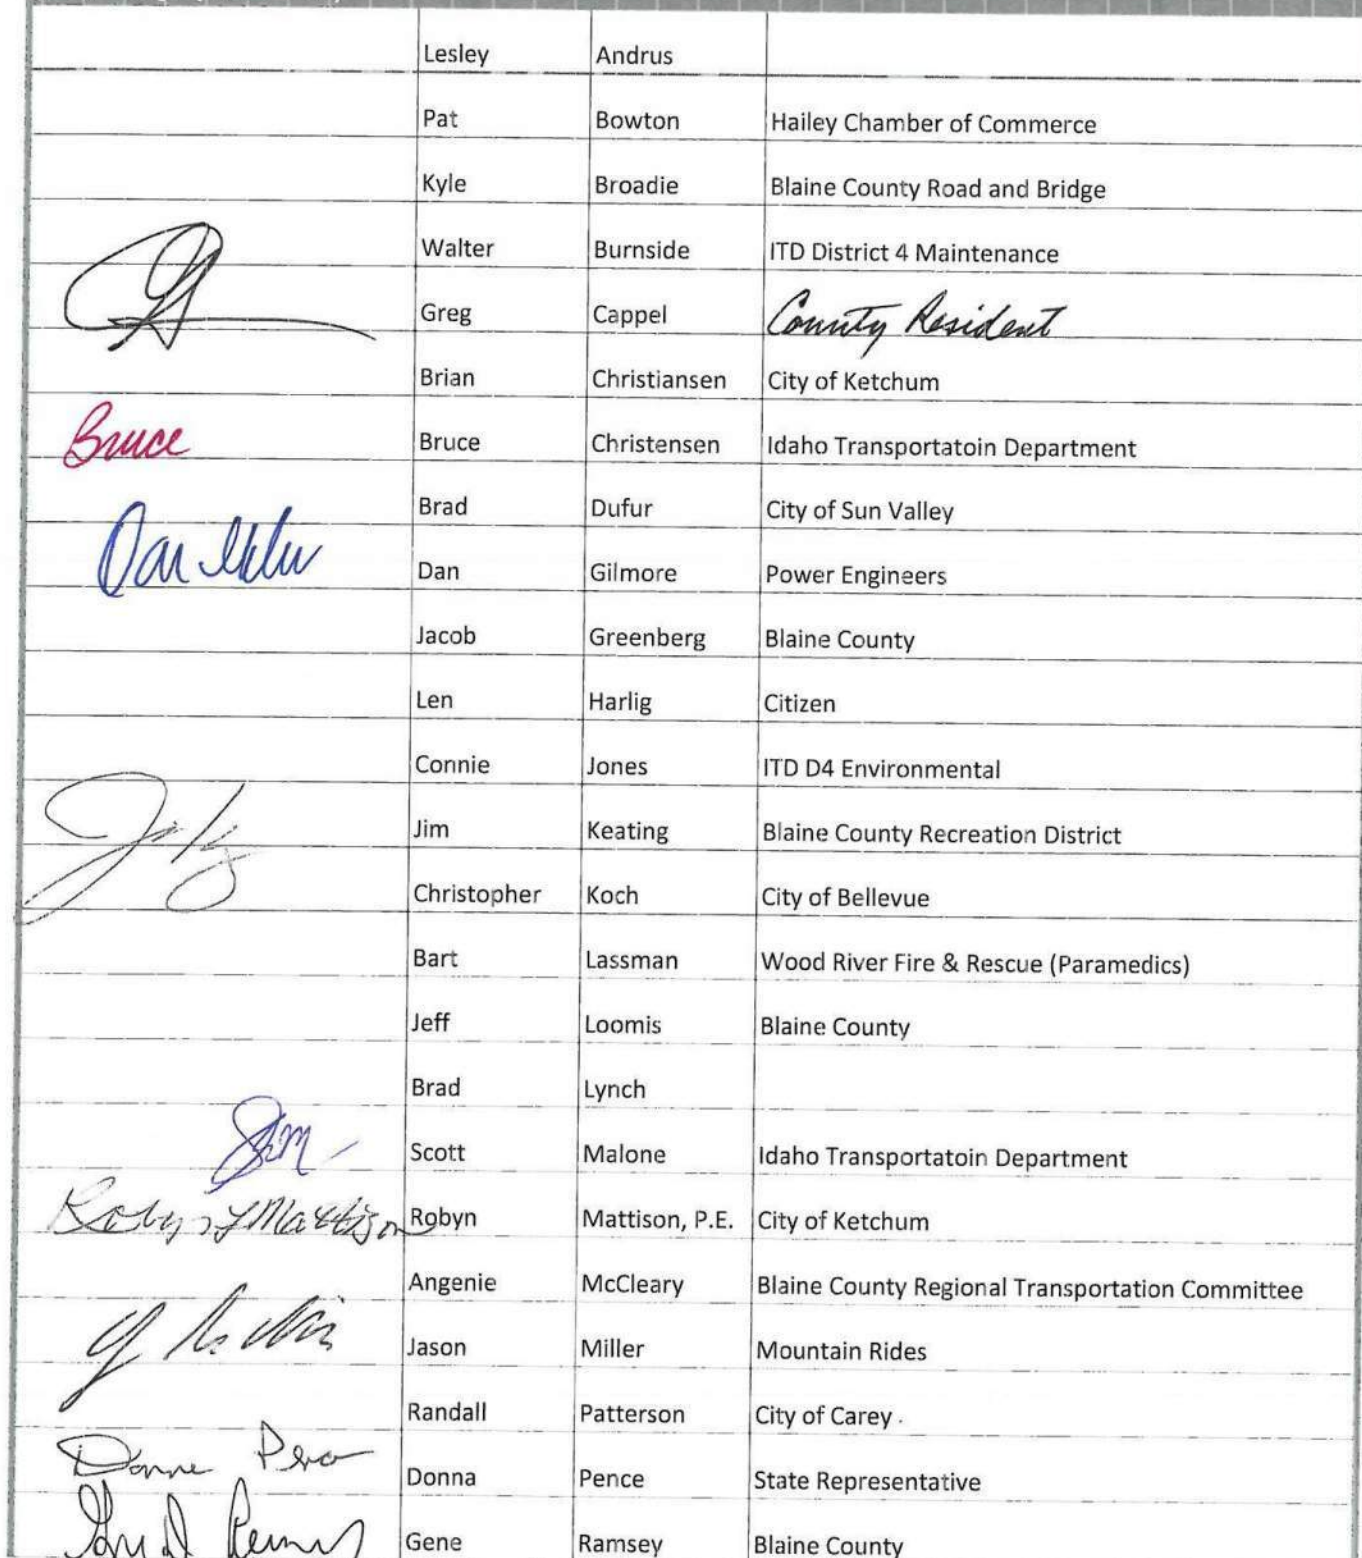 Lesley Andrus
Pat Bowton Hailey Chamber of Commerce
Kyle Broadie Blaine County Road and Bridge
Walter Burnside ITD District 4 Maintenance
Greg Cappel County Resident
Brian Christiansen City of Ketchum
Bruce Bruce Christensen Idaho Transportatoin Department
Brad Dufur City of Sun Valley
Dan Gilmore Power Engineers
Jacob Greenberg Blaine County
Len Harlig Citizen
Connie Jones ITD D4 Environmental
Jim Keating Blaine County Recreation District
Christopher Koch City of Bellevue
Bart Lassman Wood River Fire & Rescue (Paramedics)
Jeff Loomis Blaine County
Brad Lynch
Scott Malone Idaho Transportatoin Department
Robyn Mattison Robyn Mattison, P.E. City of Ketchum
Angenie McCleary Blaine County Regional Transportation Committee
Jason Miller Mountain Rides
Randall Patterson City of Carey
Donna Pence State Representative
Gene Ramsey Blaine County